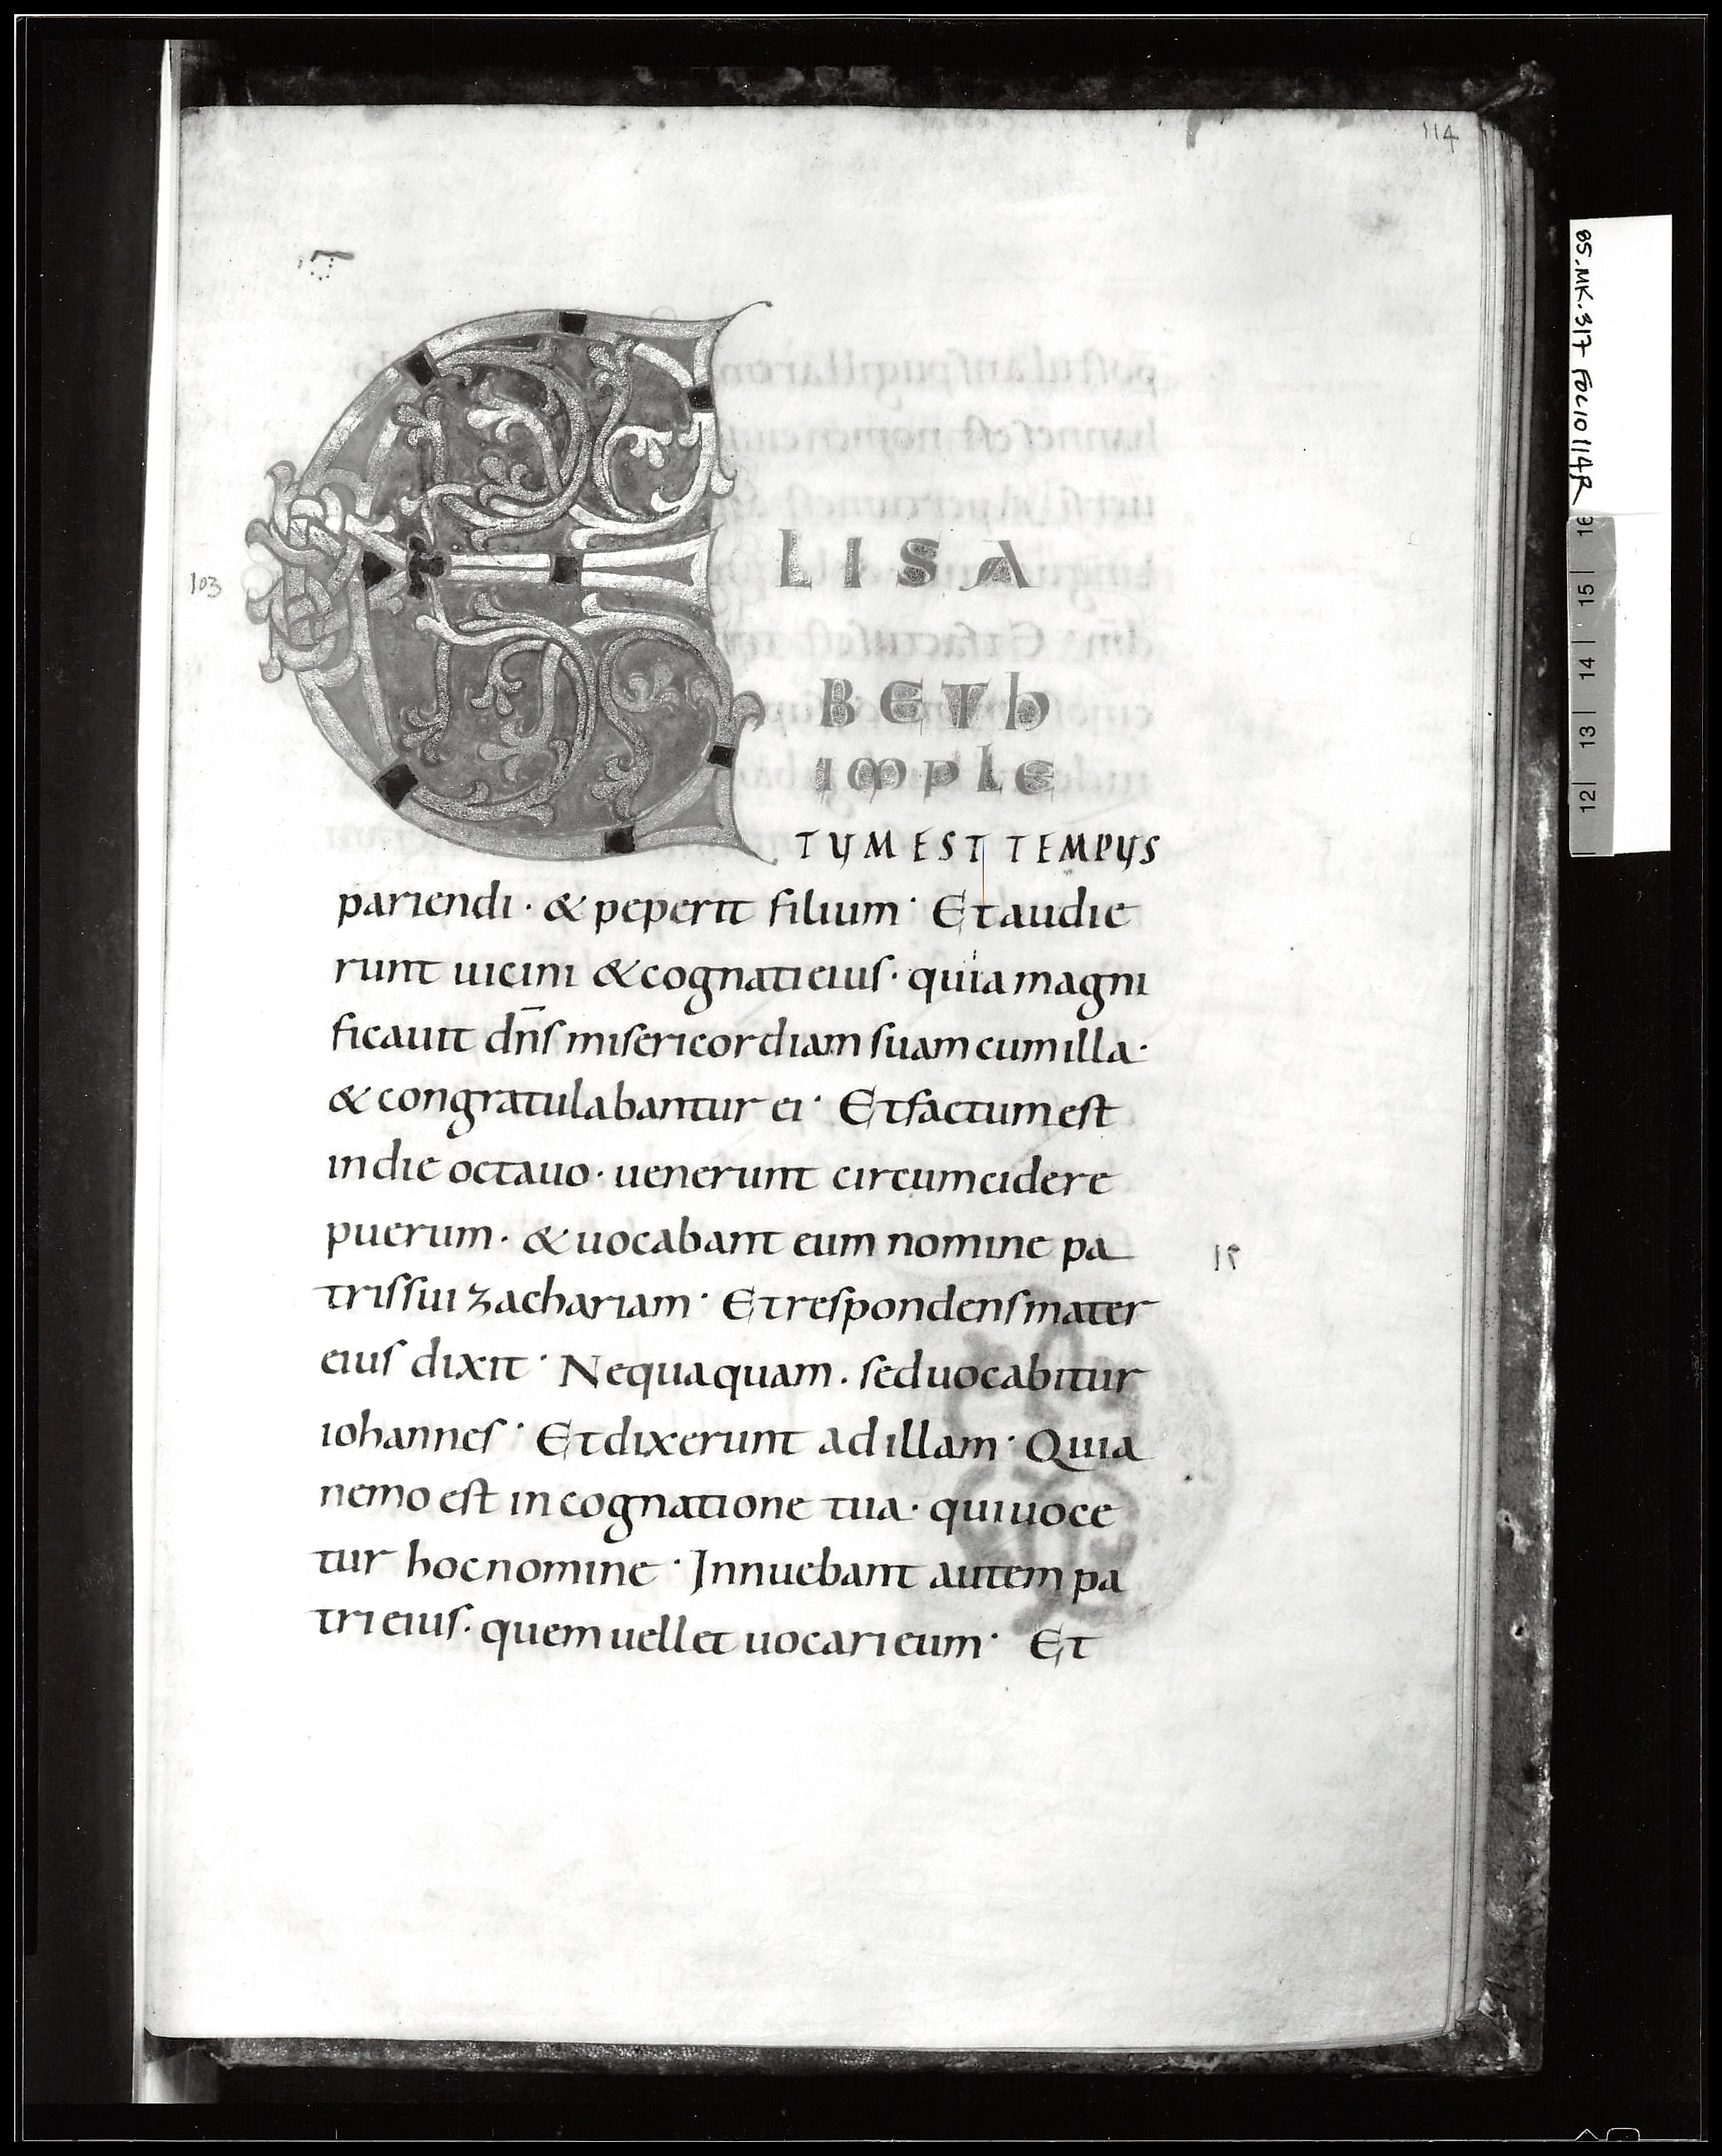 114
85.MK.317 FOLIO 114R
16
15
14
13
12
103
ELISA
BETh
imple
TUM EST TEMPUS
pariendi · & peperit filium · Et audie
runt uicini & cognati eius · quia magni
ficauit dn̄s misericordiam suam cum illa ·
& congratulabantur ei · Et factum est
in die octauo · uenerunt circumcidere
puerum · & uocabant eum nomine pa
tris sui zachariam · Et respondens mater
eius dixit · Nequaquam · sed uocabitur
iohannes · Et dixerunt ad illam · Quia
nemo est in cognatione tua · qui uoce
tur hoc nomine · Innuebant autem pa
tri eius · quem uellet uocari eum · Et